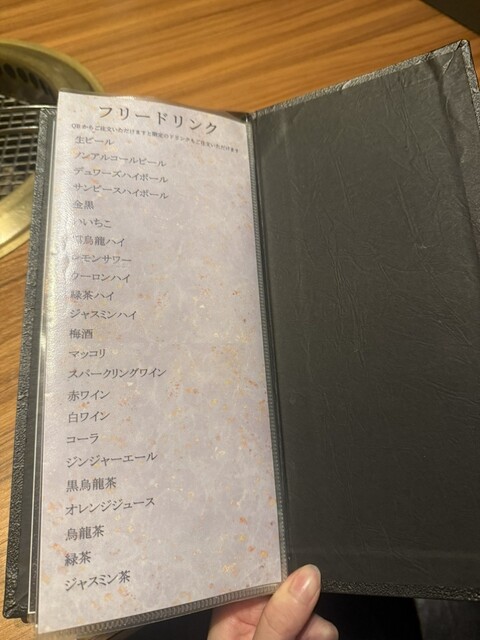 フリードリンク
QRからご注文いただけますと限定のドリンクもご注文いただけます
生ビール
ノンアルコールビール
デュワーズハイボール
サンピースハイボール
金黒
いいちこ
烏龍ハイ
レモンサワー
ウーロンハイ
緑茶ハイ
ジャスミンハイ
梅酒
マッコリ
スパークリングワイン
赤ワイン
白ワイン
コーラ
ジンジャーエール
黒烏龍茶
オレンジジュース
烏龍茶
緑茶
ジャスミン茶